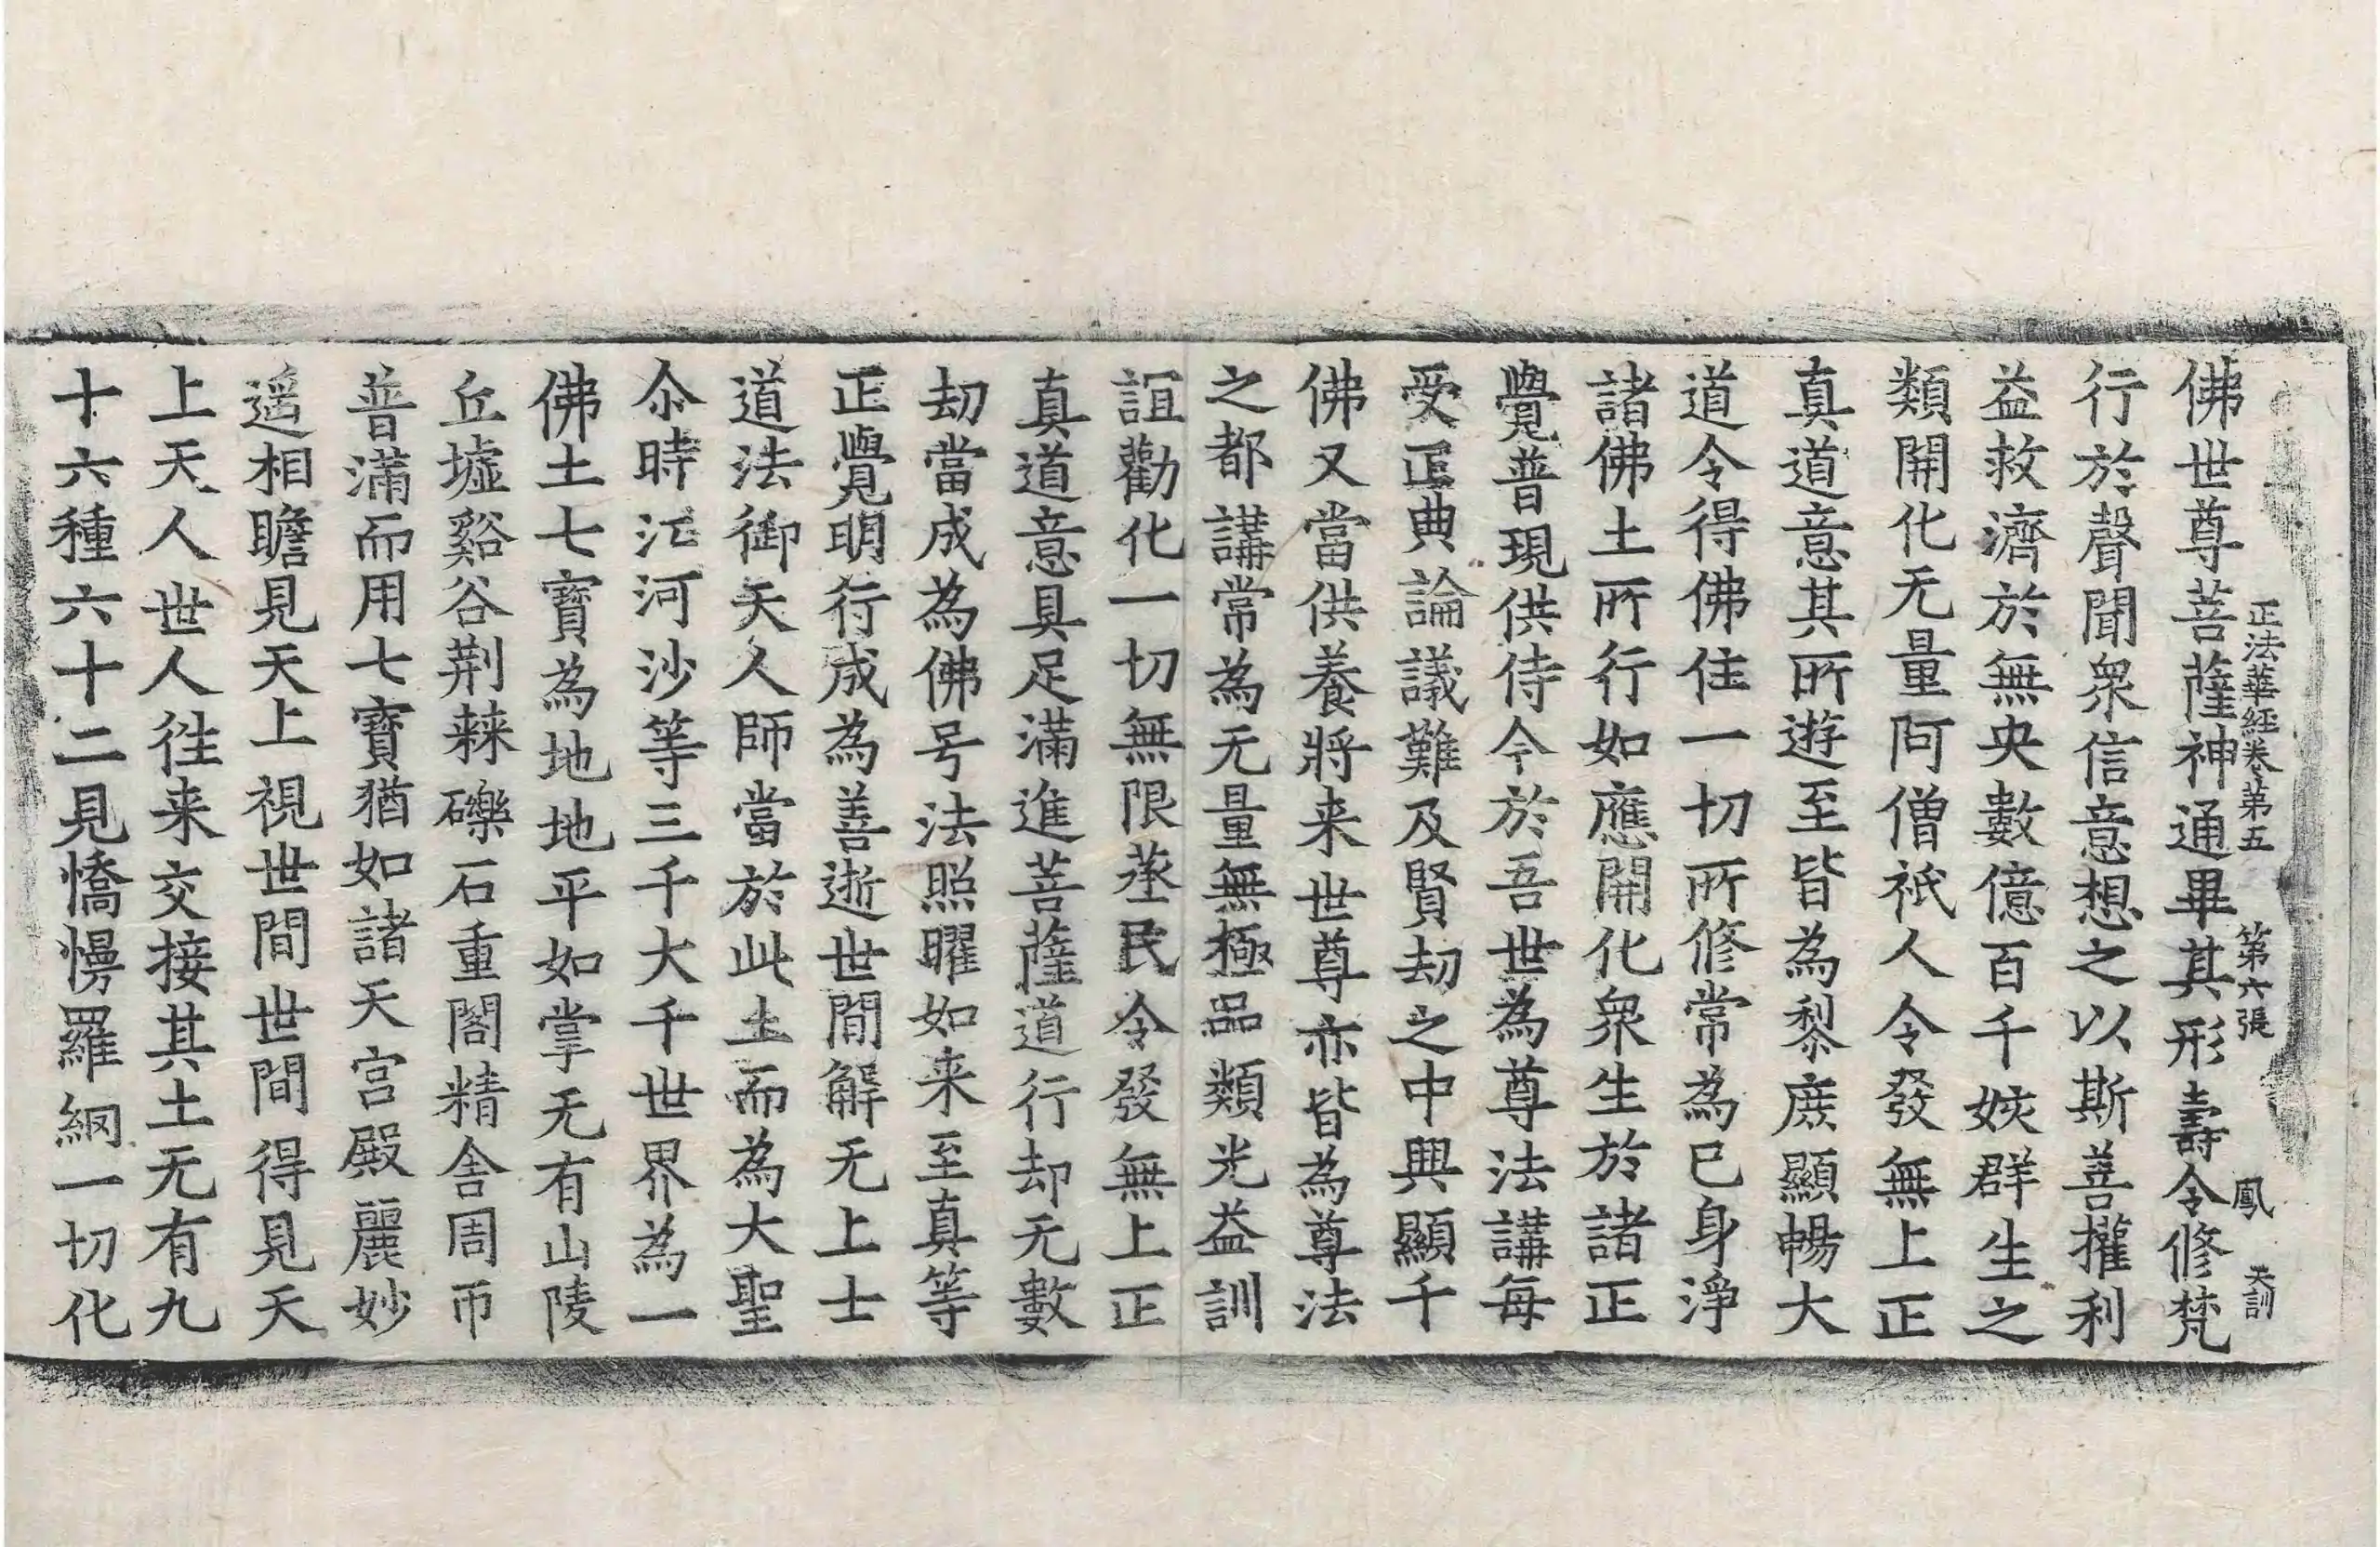 正法華經卷第五 第六張 鳳 天訓
佛世尊菩薩神通畢其形壽令修梵
行於聲聞衆信意想之以斯善權利
益救濟於無央數億百千姟群生之
類開化无量阿僧祇人令發無上正
真道意其所遊至皆為黎庶顯暢大
道令得佛住一切所修常為已身淨
諸佛土所行如應開化衆生於諸正
覺普現供侍今於吾世為尊法講每
受正典論議難及賢劫之中興顯千
佛又當供養將来世尊亦皆為尊法
之都講常為无量無極品類光益訓
誼勸化一切無限蒸民令發無上正
真道意具足滿進菩薩道行却无數
劫當成為佛号法照曜如来至真等
正覺明行成為善逝世間解无上士
道法御天人師當於此土而為大聖
尒時江河沙等三千大千世界為一
佛土七寶為地地平如掌无有山陵
丘墟谿谷荆棘礫石重閣精舍周帀
普滿而用七寶猶如諸天宮殿麗妙
遥相瞻見天上視世間世間得見天
上天人世人徃来交接其土无有九
十六種六十二見憍慢羅網一切化